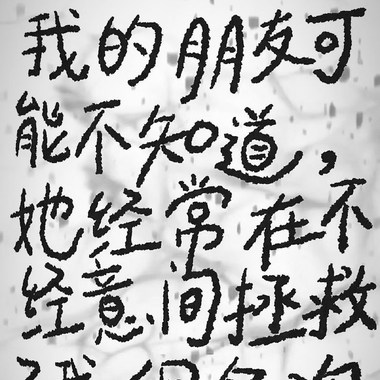 我的朋友可
能不知道，
她经常在不
经意间拯救